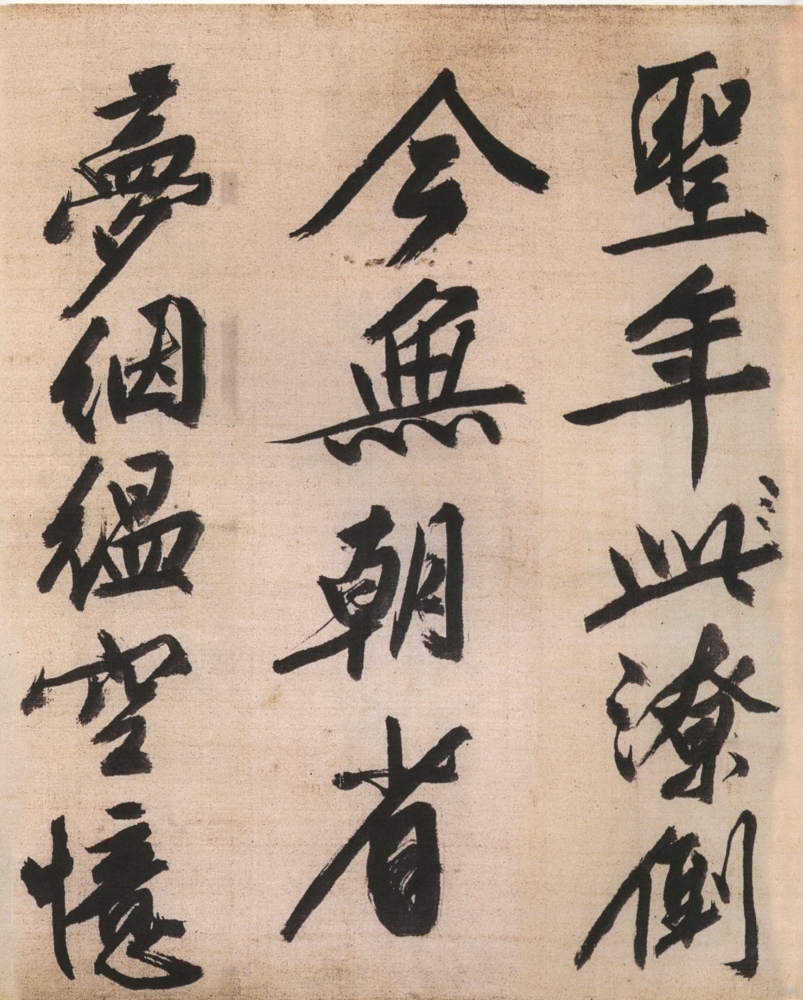 聖年此潦倒
今無朝省
夢絪縕空憶